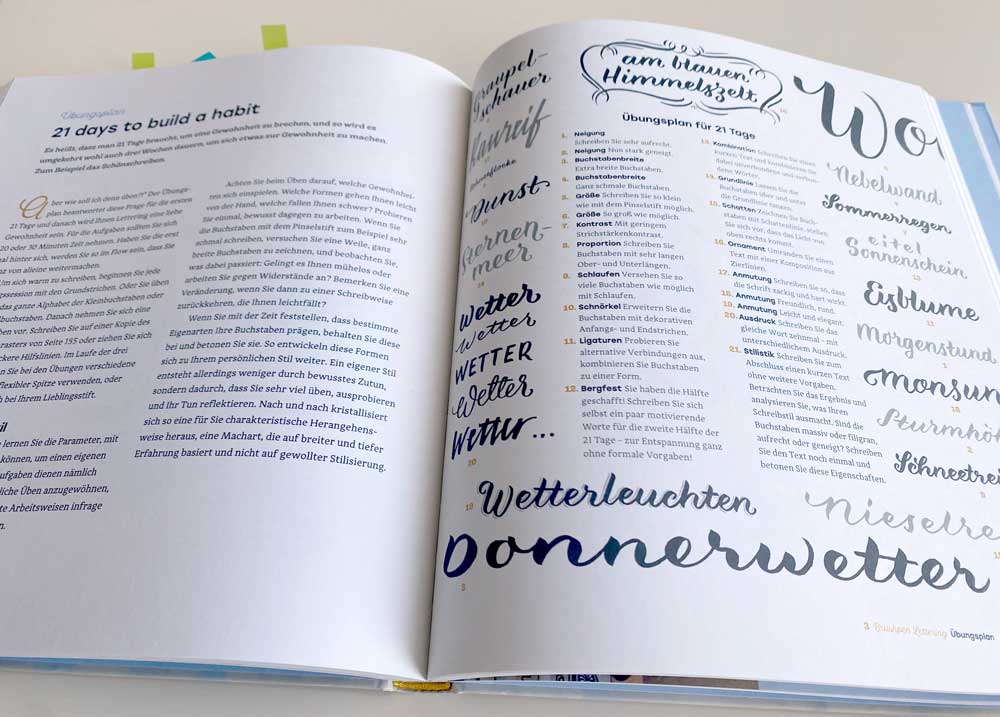 Übungsplan
21 days to build a habit
Es heißt, dass man 21 Tage brauche, um eine Gewohnheit zu brechen, und so wird es
umgekehrt wohl auch drei Wochen dauern, um sich etwas zur Gewohnheit zu machen.
Zum Beispiel das Schönschreiben.
Aber wie soll ich denn üben?" Der Übungs-
plan beantwortet diese Frage für die ersten
21 Tage und danach wird Ihnen Lettering eine liebe
Gewohnheit sein. Für die Aufgaben sollten Sie sich
20 oder 30 Minuten Zeit nehmen. Haben Sie die erst
mal hinter sich, werden Sie so im Flow sein, dass Sie
von alleine weitermachen.
Um sich warm zu schreiben, beginnen Sie jede
mit den Grundstrichen. Oder Sie üben
das ganze Alphabet der Kleinbuchstaben oder
buchstaben. Danach nehmen Sie sich eine
ben vor. Schreiben Sie auf einer Kopie des
rasters von Seite 155 oder ziehen Sie sich
ckere Hilfslinien. Im Laufe der drei
n Sie bei den Übungen verschiedene
flexibler Spitze verwenden, oder
bei Ihrem Lieblingsstift.
il
lernen Sie die Parameter, mit
können, um einen eigenen
ufgaben dienen nämlich
liche Üben anzugewöhnen,
te Arbeitsweisen infrage
n.
Achten Sie beim Üben darauf, welche Gewohnhei-
ten sich einspielen. Welche Formen gehen Ihnen leicht
von der Hand, welche fallen Ihnen schwer? Probieren
Sie einmal, bewusst dagegen zu arbeiten. Wenn Sie
die Buchstaben mit dem Pinselstift zum Beispiel sehr
schmal schreiben, versuchen Sie eine Weile, ganz
breite Buchstaben zu zeichnen, und beobachten Sie,
was dabei passiert: Gelingt es Ihnen mühelos oder
arbeiten Sie gegen Widerstände an? Bemerken Sie eine
Veränderung, wenn Sie dann zu einer Schreibweise
zurückkehren, die Ihnen leichtfällt?
Wenn Sie mit der Zeit feststellen, dass bestimmte
Eigenarten Ihre Buchstaben prägen, behalten Sie diese
bei und betonen Sie sie. So entwickeln diese Formen
sich zu Ihrem persönlichen Stil weiter. Ein eigener Stil
entsteht allerdings weniger durch bewusstes Zutun,
sondern dadurch, dass Sie sehr viel üben, ausprobieren
und Ihr Tun reflektieren. Nach und nach kristallisiert
sich so eine für Sie charakteristische Herangehens-
weise heraus, eine Machart, die auf breiter und tiefer
Erfahrung basiert und nicht auf gewollter Stilisierung.
Graupel-
schauer
Raureif
Schneeflocke
Dunst
Sternen-
meer
14
Wetter
Wetter
WETTER
Wetter
Wetter...
20
am blauen
Himmelszelt
16
Übungsplan für 21 Tage
1. Neigung
Schreiben Sie sehr aufrecht.
2. Neigung Nun stark geneigt.
3. Buchstabenbreite
Extra breite Buchstaben.
4. Buchstabenbreite
Ganz schmale Buchstaben.
5. Größe Schreiben Sie so klein
wie mit dem Pinselstift möglich.
6. Größe So groß wie möglich.
7. Kontrast Mit geringem
Strichstärkenkontrast.
8. Proportion Schreiben Sie
Buchstaben mit sehr langen
Ober- und Unterlängen.
9. Schlaufen Versehen Sie so
viele Buchstaben wie möglich
mit Schlaufen.
10. Schnörkel Erweitern Sie die
Buchstaben mit dekorativen
Anfangs- und Endstrichen.
11. Ligaturen Probieren Sie
alternative Verbindungen aus,
kombinieren Sie Buchstaben
zu einer Form.
12. Bergfest Sie haben die Hälfte
geschafft! Schreiben Sie sich
selbst ein paar motivierende
Worte für die zweite Hälfte der
21 Tage – zur Entspannung ganz
ohne formale Vorgaben!
13. Kombination Schreiben Sie einen
kurzen Text und kombinieren Sie
dabei unverbundene und verbun-
dene Wörter.
14. Grundlinie Lassen Sie die
Buchstaben über und unter
die Grundlinie tanzen.
15. Schatten Zeichnen Sie Buch-
staben mit Schattenlinie, stellen
Sie sich vor, dass das Licht von
oben rechts kommt.
16. Ornament Umranden Sie einen
Text mit einer Komposition aus
Zierlinien.
17. Anmutung Schreiben Sie so, dass
die Schrift zackig und hart wirkt.
18. Anmutung Freundlich, rund.
19. Anmutung Leicht und elegant.
20. Ausdruck Schreiben Sie das
gleiche Wort zehnmal – mit
unterschiedlichem Ausdruck.
21. Stilistik Schreiben Sie zum
Abschluss einen kurzen Text
ohne weitere Vorgaben.
Betrachten Sie das Ergebnis und
analysieren Sie, was Ihren
Schreibstil ausmacht. Sind die
Buchstaben massiv oder filigran,
aufrecht oder geneigt? Schreiben
Sie den Text noch einmal und
betonen Sie diese Eigenschaften.
Wo
Nebelwand
Sommerregen
eitel
Sonnenschein
13
Eisblume
11
Morgenstund
monsun
18
Sturmhö
2
Schneetrei
9
19
Wetterleuchten
nieselre
Donnerwetter
3
3 Brushpen Lettering Übungsplan